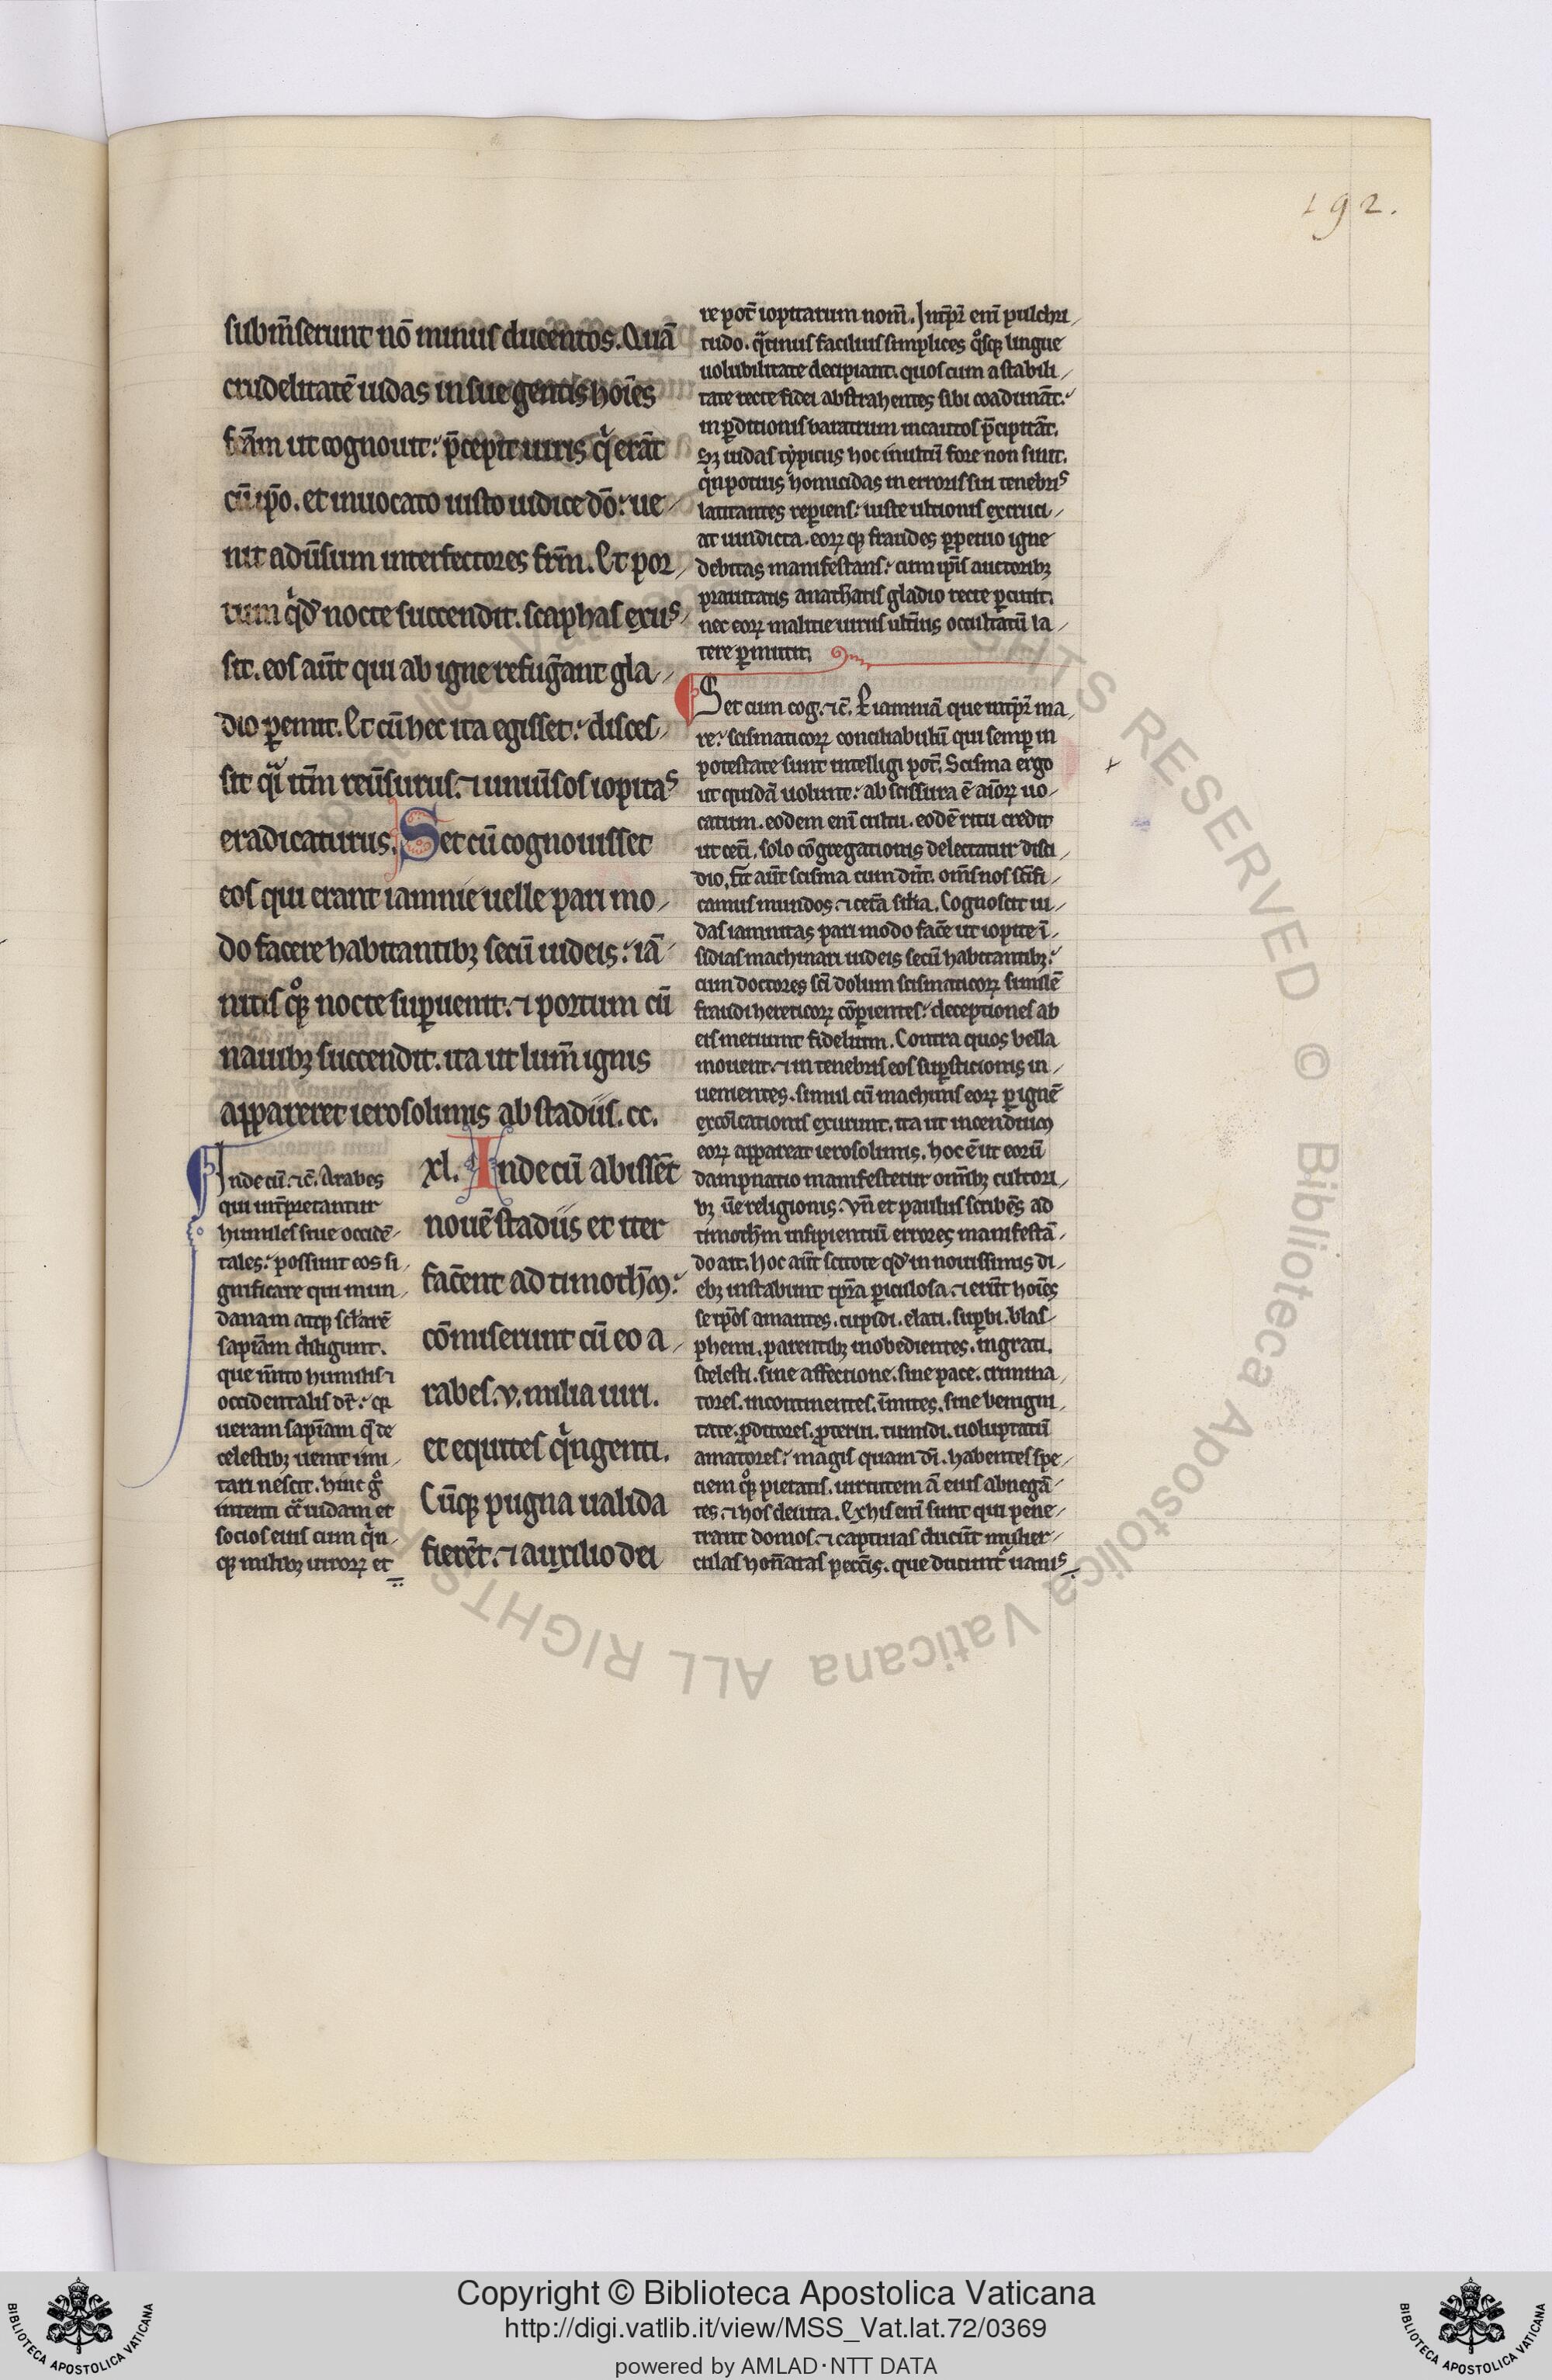 192.
submerserunt nō minus ducentos. Quā
crudelitatē iudas in sue gentis hoīes
fcām ut cognouit: p̄cepit uiris q̇ erāt
cū ip̄o. et inuocato iusto iudice dō: ue
nit adūsum interfectores frm̄. Et por
tum q̇d' nocte succendit. scaphas exus
sit. eos aūt qui ab igne refuḡant gla
dio p̄emit. Et cū hec ita egisset: disces
sit q̄i itm̄ reūsurus. ⁊ uniūsos iopitas
eradicaturus. Set cū cognouisset
eos qui erant iamnie uelle pari mo
do facere habitantibꝫ secū iudeis: iā
nitis q̊qꝫ nocte suꝑuenit. ⁊ portum cū
nauibꝫ succendit. ita ut lum̄ ignis
appareret ierosolimis ab stadiis. cc.
xl. Inde cū abissēt
nouē stadiis et iter
fac̄ent ad timoth̄m:
cōmiserunt cū eo a
rabes. v. milia uiri.
et equites q̇ngenti.
Cūqꝫ pugna ualida
fierēt. ⁊ auxilio dei
Inde cū. ⁊c̄. Arabes
qui int̄pretantur
humiles siue occidē
tales: possunt eos si
gnificare qui mun
danam atqꝫ sc̄larē
sapīam diligunt.
que m̄ito humilis ⁊
occidentalis dr̄: qꝫ
ueram sapīam q̄ de
celestibꝫ uenit imi
tari nescit. hinc g̊
intenti cͣ iudam et
socios eius cum q̇n
qꝫ milibꝫ uiroꝝ et
re pot̄ iopitarum nom̄. Int̄pr̄ enī pulchri
tudo. q̄tinus facilius simplices q̊sqꝫ lingue
uolubilitate decipiant. quos cum a stabili
tate recte fidei abstrahentes sibi coadunāt:
in ꝑditionis baratrum incautos p̄cipitāt.
Sꝫ iudas typicus hoc inultū fore non sinit.
q̇n potius homicidas in erroris sui tenebris
latitantes reꝑiens: iuste ultionis exciuci
at uindicta. eoꝝ qꝫ fraudes ꝑpetuo igne
debitas manifestans: cum ip̄is auctoribꝫ
prauitatis anathatis gladio recte ꝑcutit.
nec eoꝝ malitie uirus ult̄ius occultatū la
tere ꝑmittit.
Set cum cog. ⁊c̄. P̱ iamniā que int̄pr̄ ma
re: scismaticoꝝ conciliabulū qui semꝑ in
potestate sunt intelligi pot̄. Scisma ergo
ut quidā uolunt: ab scissura ē aīoꝝ uo
catum. eodem enī cultu. eodē ritu credit
ut cet̄i. solo cōgregationis delectatur disci
dio. fit aūt scisma cum dn̄t. om̄s nos sc̄ifi
camus mundos. ⁊ cet̄a sil̄ia. Cognoscit iu
das iamnitas pari modo fac̄e ut iopite ī
sidias machinari iudeis secū habitantibꝫ:
cum doctores sc̄i dolum scismaticoꝝ similē
fraudi hereticoꝝ cōꝑientes: deceptiones ab
eis metiunt fidelium. Contra quos bella
mouent. ⁊ in tenebris eos suꝑsticionis in
uenientes. simul cū machinis eoꝝ ꝑ ignē
excōicationis exurunt. ita ut incendium
eoꝝ appareat ierosolimis. hoc ē ut eorū
dampnatio manifestetur omībꝫ cultori
bꝫ ūe religionis. Vn̄ et paulus scribēs ad
timoth̄m insipientiū errores manifestā
do ait. hoc aūt scitote qd' in nouissimis di
ebꝫ instabunt tp̄ra ꝑiculosa. ⁊ erūt hoīes
se ip̄os amantes. cupidi. elati. suꝑbi. blas
phemi. parentibꝫ inobedientes. ingrati.
scelesti. sine affectione. sine pace. crimina
tores. incontinentes. īmites. sine benigni
tate. ꝓditores. ꝓterui. tumidi. uoluptatū
amatores: magis quam dī. habentes spe
ciem q̊qꝫ pietatis. uirtutem ā eius abnegā
tes. ⁊ hos deuita. Ex his enī sunt qui pene
trant domos. ⁊ captiuas ducūt mulier
culas hon̄atas pecc̄is. que ducuntᷣ uanis
Copyright © Biblioteca Apostolica Vaticana
http://digi.vatlib.it/view/MSS_Vat.lat.72/0369
powered by AMLAD·NTT DATA
BIBLIOTECA APOSTOLICA VATICANA
BIBLIOTECA APOSTOLICA VATICANA
© Biblioteca Apostolica Vaticana ALL RIGHTS RESERVED